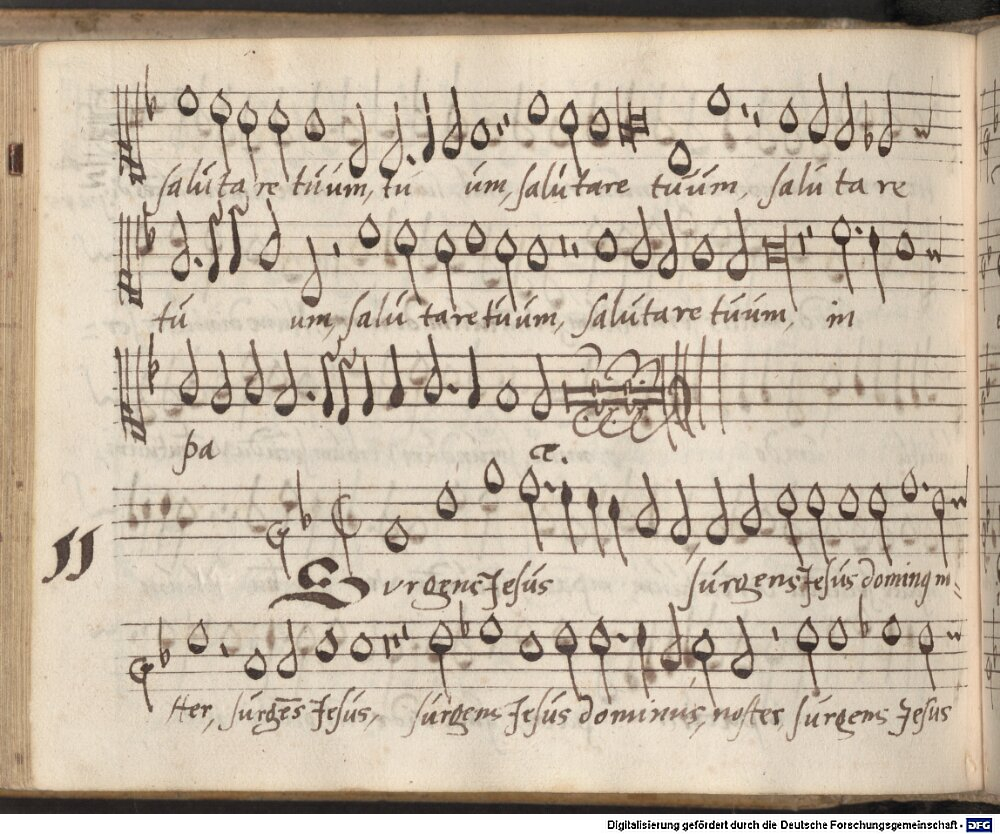 salutare tuum, tu um, salutare tuum, salutare
tu um, salutare tuum, salutare tuum, in
pa ce.
Surgens Jesus surgens Jesus dominus no=
ster, surgēs Jesus, surgens Jesus dominus, noster, surgens Jesus
Digitalisierung gefördert durch die Deutsche Forschungsgemeinschaft - DFG